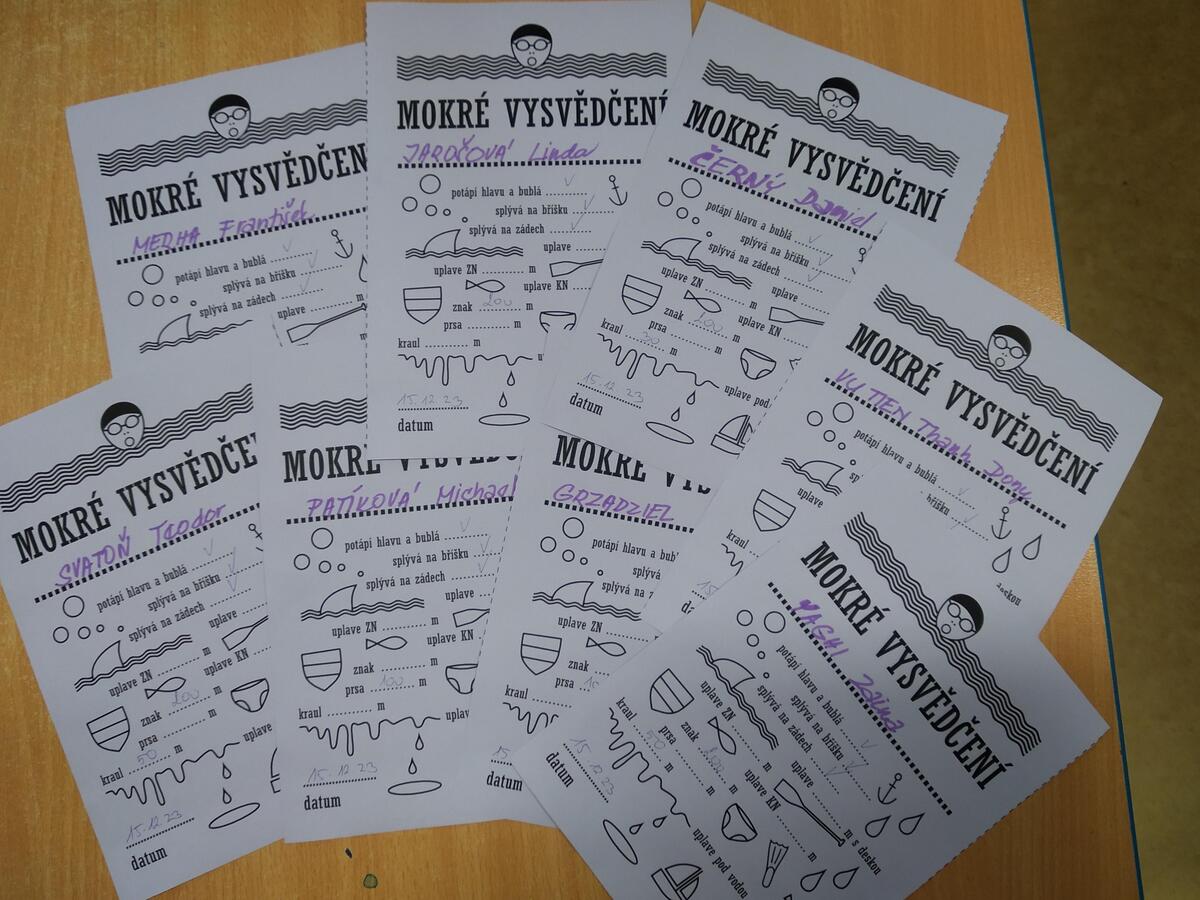 MOKRÉ VYSVĚDČEN
MEDHA František
potápí hlavu a bublá
splývá na bříšku
splývá na zádech
uplave m
MOKRÉ VYSVĚDČENÍ
JAROČOVÁ Linda
potápí hlavu a bublá
splývá na bříšku
splývá na zádech
uplave
uplave ZN m
uplave KN
znak 200 m
prsa m
kraul m
15.12.23
datum
MOKRÉ VYSVĚDČENÍ
ČERNÝ Daniel
potápí hlavu a bublá
splývá na bříšku
splývá na zádech
uplave
uplave ZN m
uplave KN
znak m
prsa m
kraul m
uplave pod
15.12.23
datum
MOKRÉ VYSVĚDČENÍ
VU TEN Thanh Dony
potápí hlavu a bublá
bříšku
uplave
kraul
MOKRÉ VYSVĚDČE
SVATOŇ Teodor
potápí hlavu a bublá
splývá na bříšku
splývá na zádech
uplave
uplave ZN m
uplave KN
znak 200 m
prsa m
kraul 50 m
uplave
15.12.23
datum
MOKRÉ VYSVĚDČ
PATÍKOVÁ Michael
potápí hlavu a bublá
splývá na bříšku
splývá na zádech
uplave
uplave ZN m
uplave KN
znak m
prsa 100 m
kraul m
uplav
15.12.23
datum
MOKRÉ
GRZADZIEL
potápí hlavu a bub
splývá
splývá na z
uplave ZN
znak
prsa
kraul
15.
datum
MOKRÉ VYSVĚDČENÍ
YAGHI
potápí hlavu a bublá
splývá na bříšku
splývá na zádech
uplave m s deskou
uplave ZN m
uplave KN m
znak m
prsa m
kraul 50 m
uplave pod vodou
15.12.23
datum